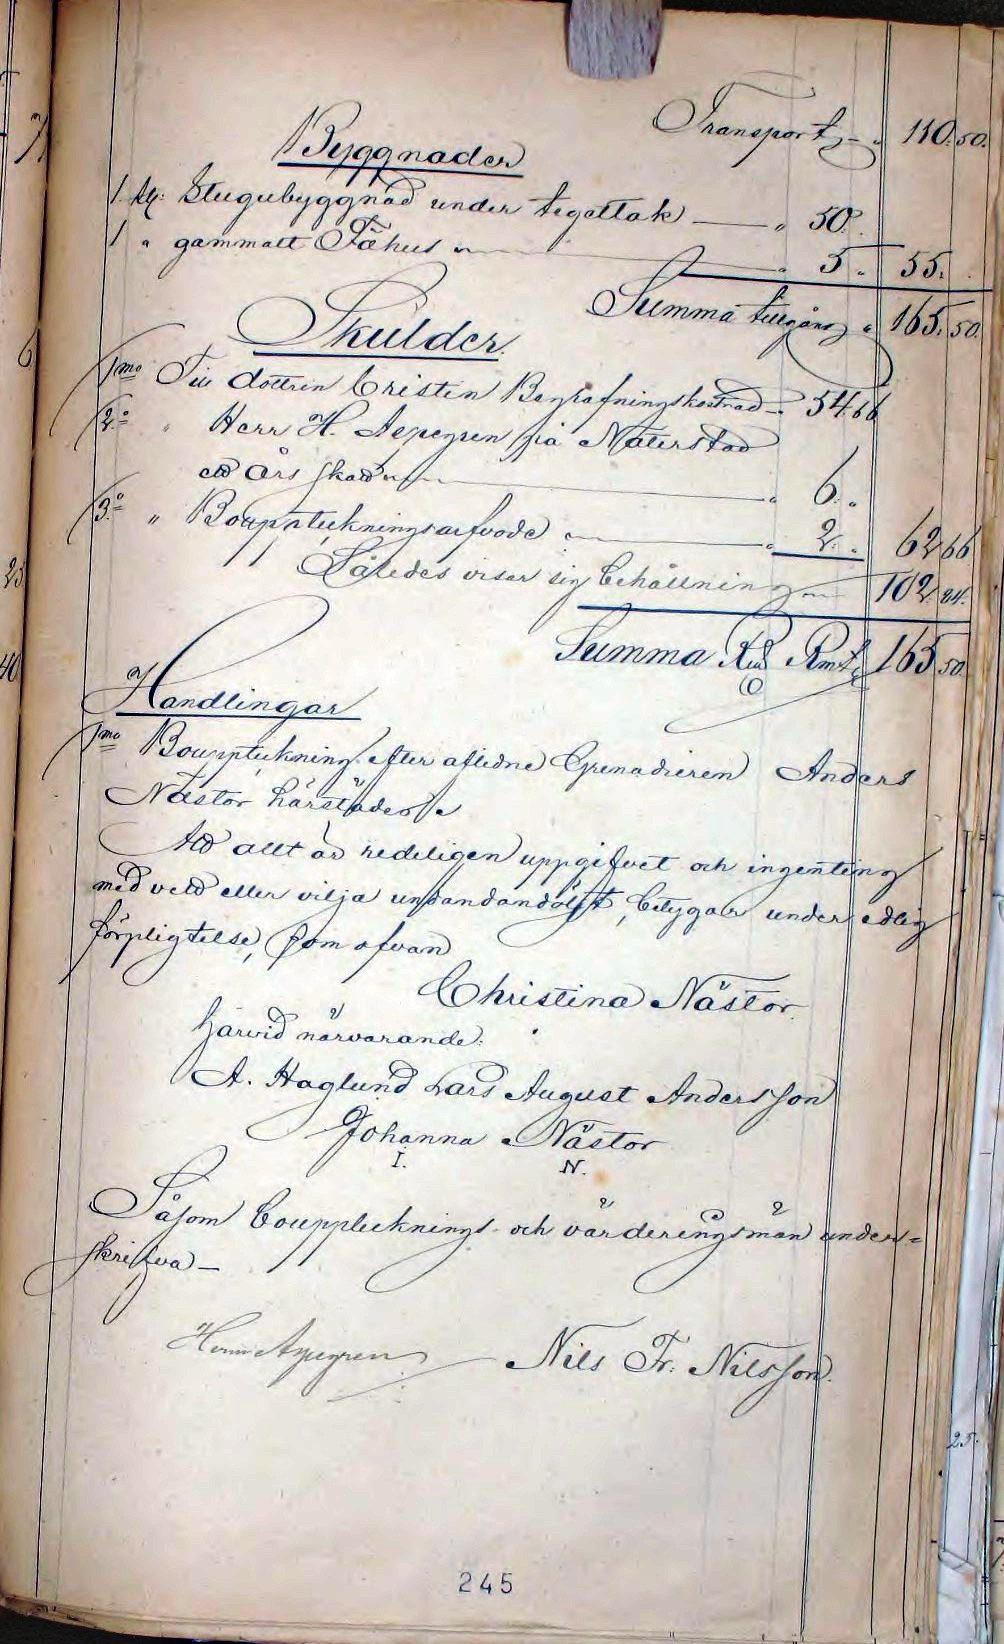 Transport „ 110. 50.
Byggnader
1. st: Stugubyggnad under tegattak — „ 50 „
1 „ gammalt Fähus „ — „ 5 „ 55.
Summa tillgång „ 165. 50.
Skulder.
1mo Till dottren Cristin Begrafningskostnad „ 54.66
2:o „ Herr H. Aspegren på Näterstad
ett års skatt — „ 6. „
3:o „ Bouppteckningsarfvode — „ 2. „ 62 66
Således viser sig behållning — 102. 84.
Summa Rd Rmt 165 50
Handlingar
1mo Bouppteckning efter aflidne Grenadieren Anders
Nästor härstädes
Att allt är redeligen uppgifvet och ingenting
med vett eller vilja undandöljt, betygar under edlig
förpligtelse, som ofvan
Christina Nästor.
Härvid närvarande:
A. Haglund Lars August Andersson
Johanna Nästor
I. N.
Såsom bouppteknings- och värderingsmän under=
skrifva —
Aspegren Nils Fr. Nilsson.
245
25.
25
40
6